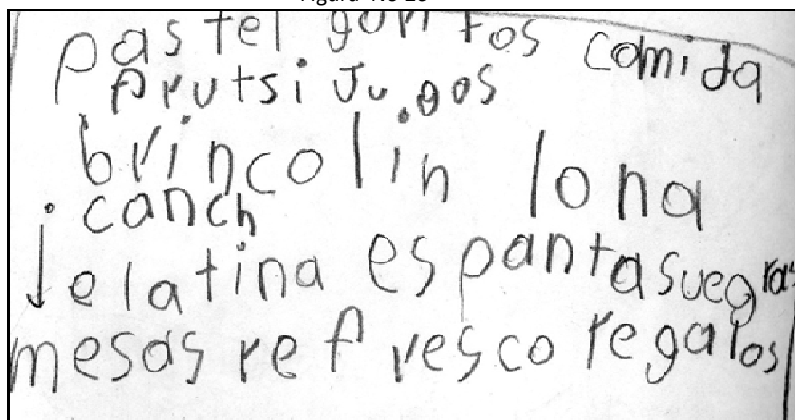 pastel gorritos comida
frutsi Jugos
brincolin lona
canch
jelatina espantasuegras
mesas refresco regalos